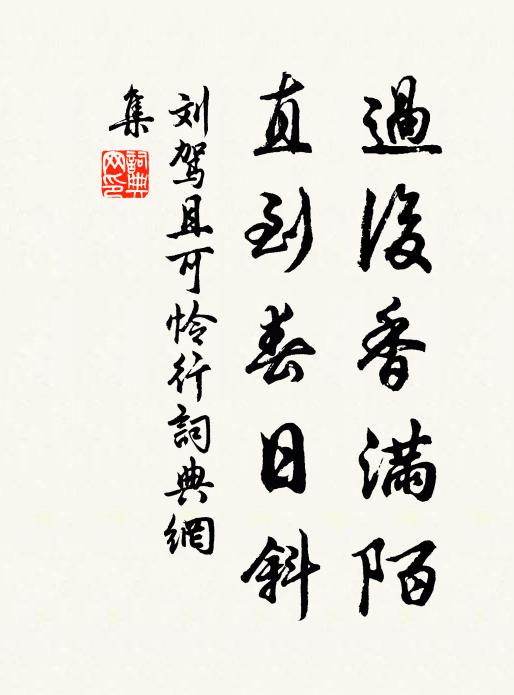 過後香滿陌
直到春日斜
刘駕且可怜行詞典網
集
詞典
网印